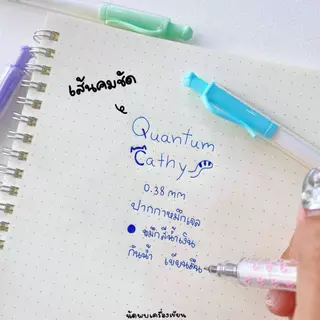 เส้นคมชัด
Quantum
Cathy
0.38 mm
ปากกาหมึกเจล
หมึกสีน้ำเงิน
กันน้ำ เขียนลื่น
นัดพบเครื่องเขียน